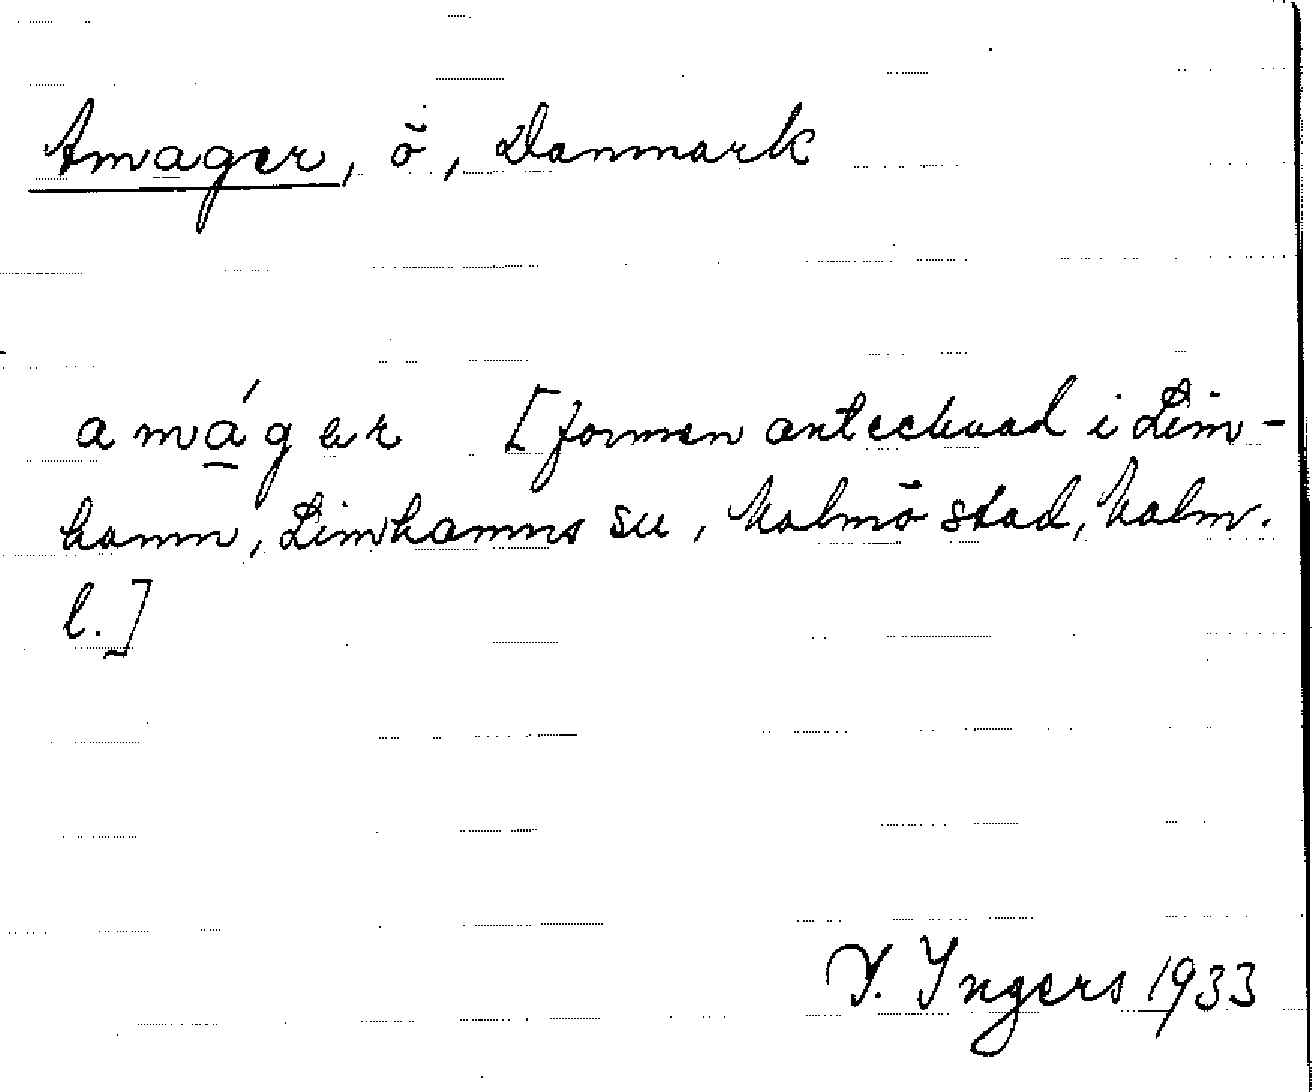 Amager, ö, Danmark
amáger [formen antecknad i Lim-
hamn, Limhamns sn, Malmö stad, Malm.
l.]
I. Ingers 1933